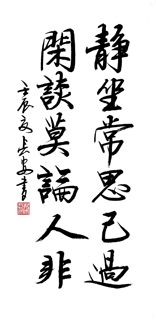 静坐常思己過
閑談莫論人非
壬辰夏長安書